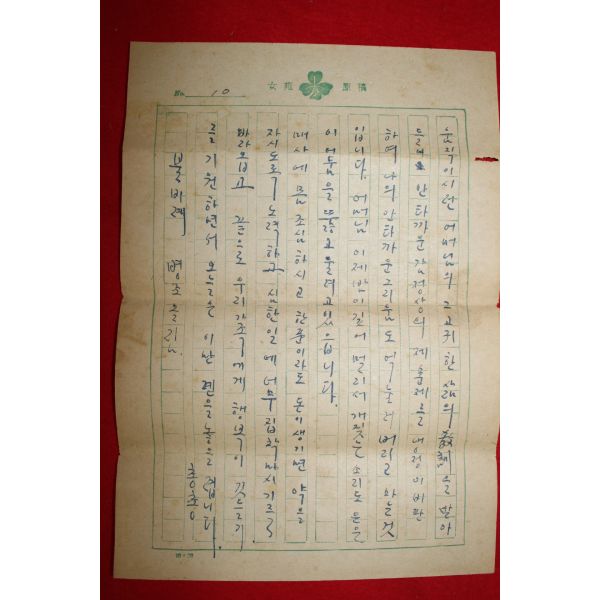 No. 10
女苑 原稿
움직이시던 어머님의 그 고귀한 삶의 敎 을 받아
들여 안타까운 감정상의 제 을 내 이 비판
하며 나의 안타까운 그리움도 억눌러 버리고 와는 것
입니다. 어머님 이제 밤이 깊어 멀리서 개짖는 소리도
이 어둠을 뚫고 울려고 있습니다.
매사에 몸 조심하시고 한푼이라도 돈이 생기면 약을
자시도록 노력하고 심한 일에 너무 집착마시기를
바라옵고 끝으로 우리 가족에게 행복이 깃드기
를 기원하면서 오늘은 이만 펜을 놓을 렵니다.
총총
불바래 병조 올림.